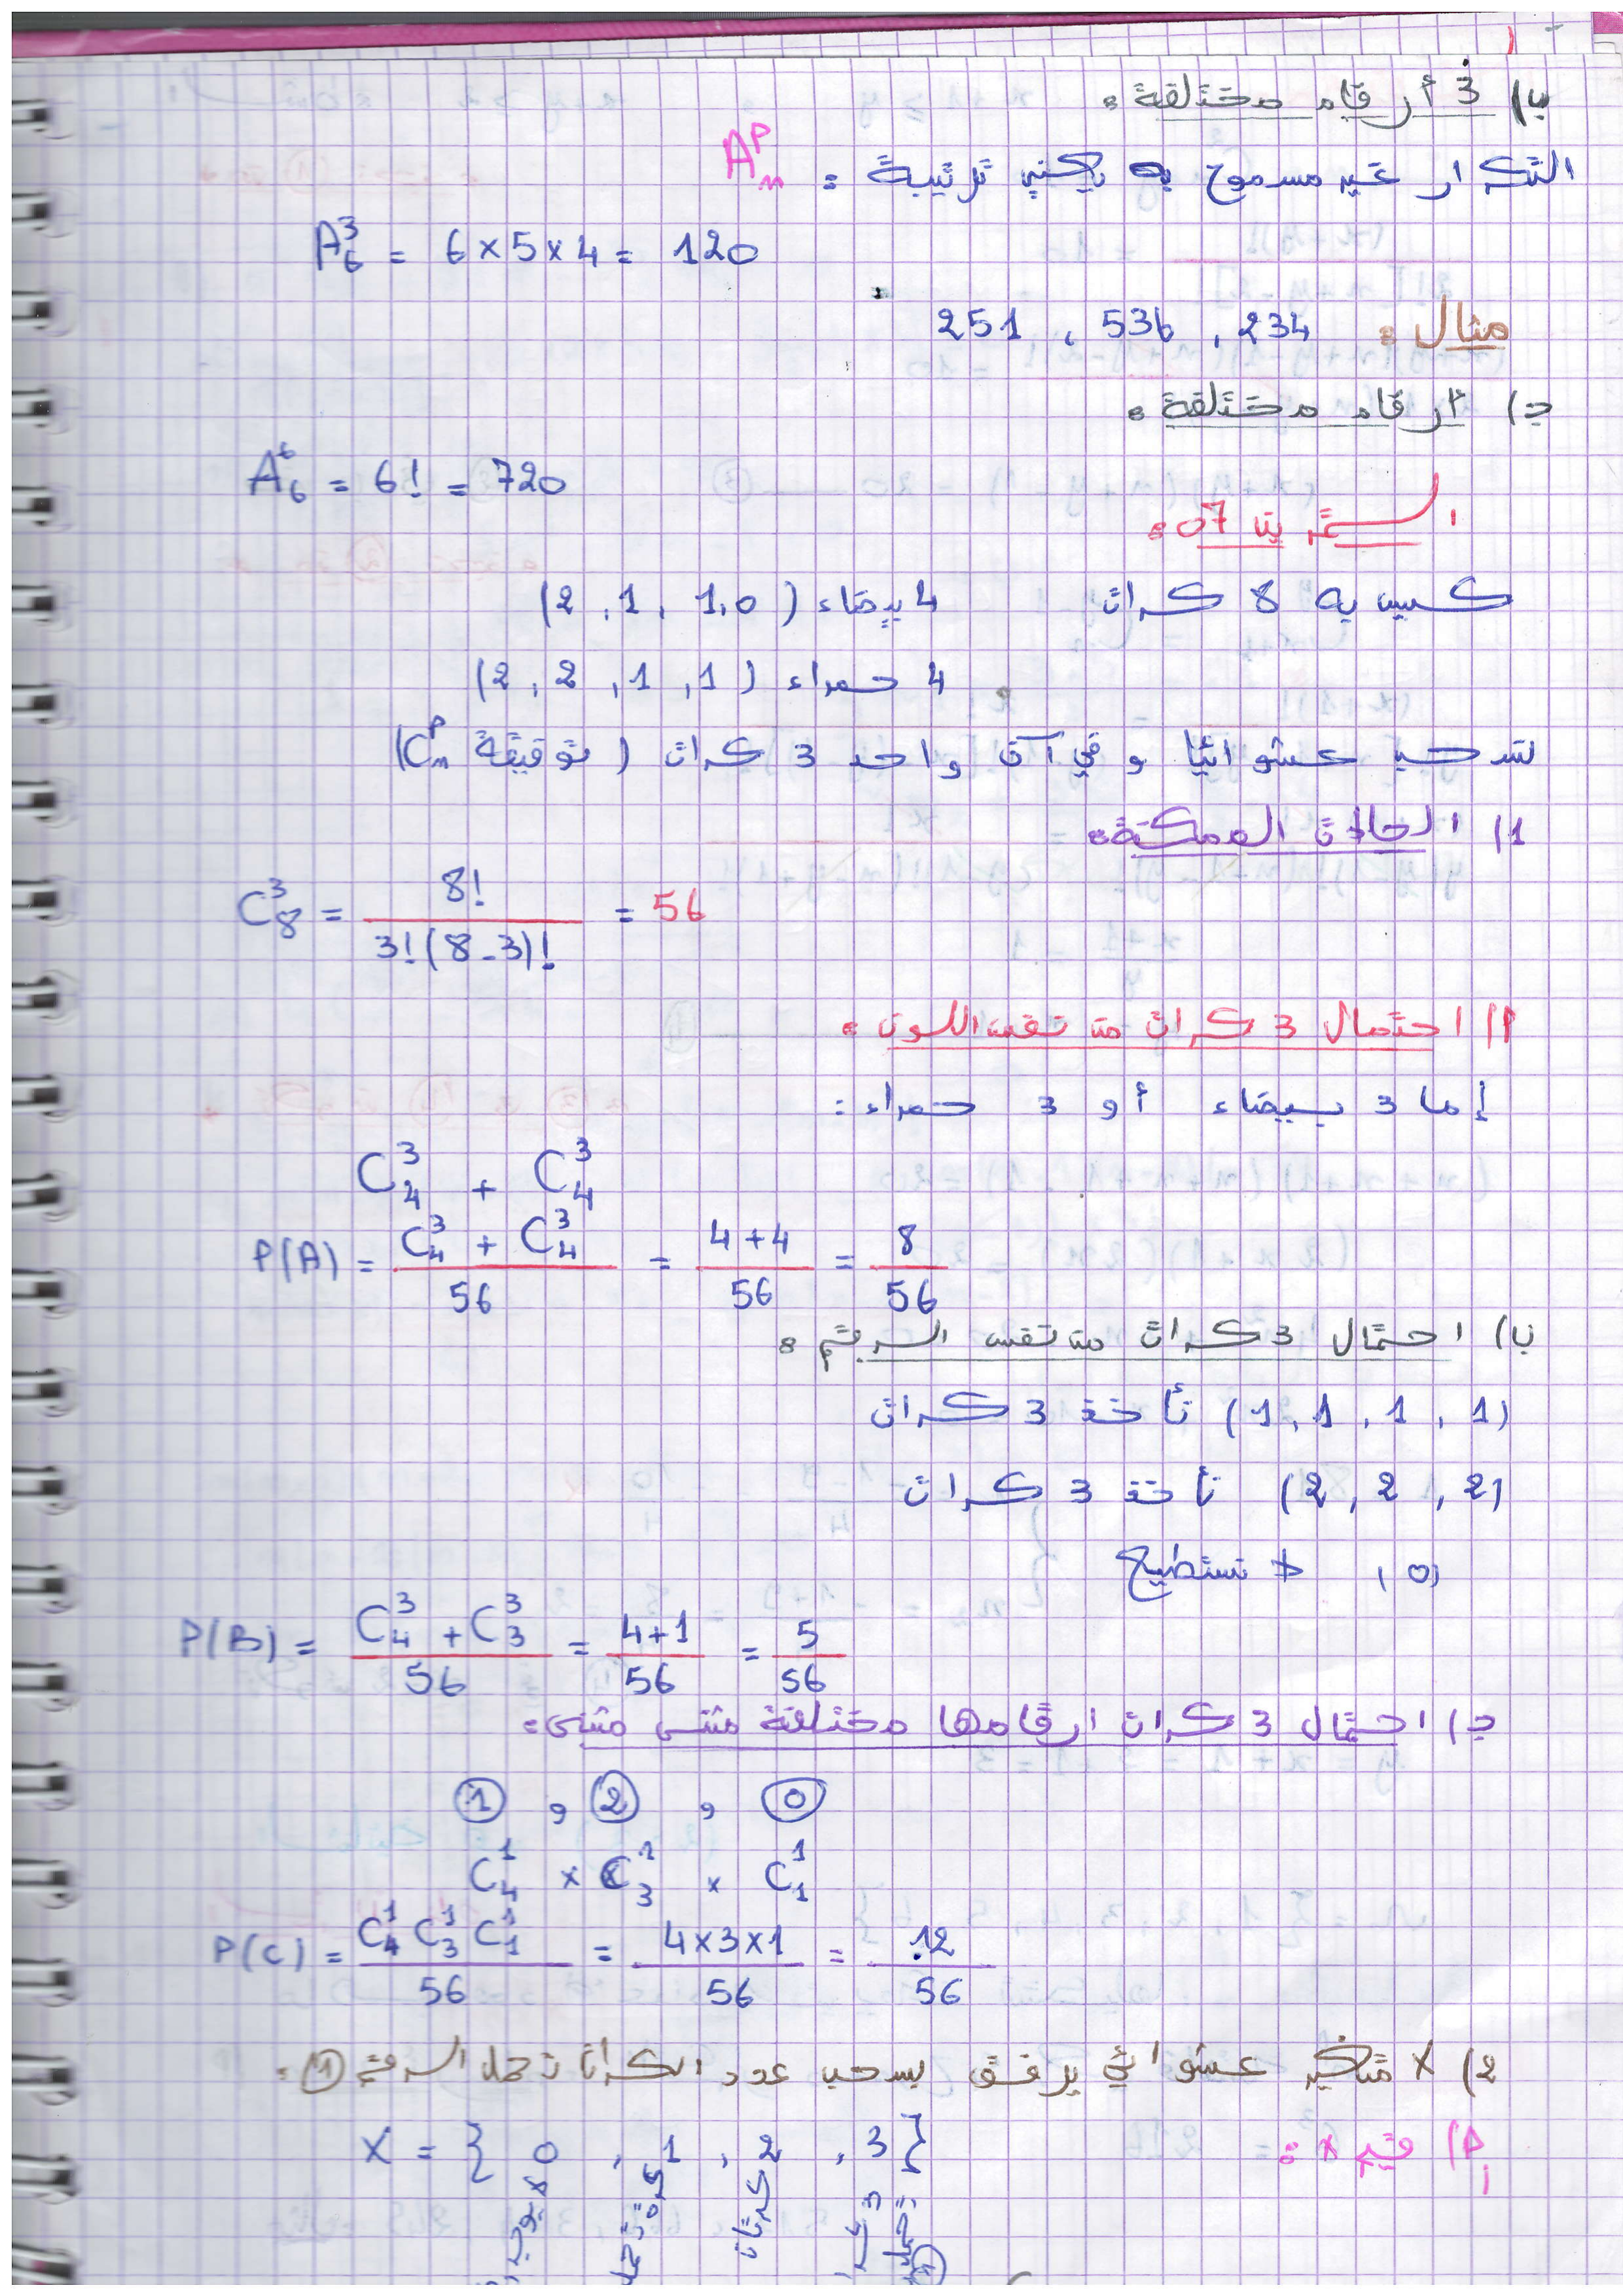 ب) 3 أرقام مختلفة :
التكرار غير مسموح به يكفي ترتيبة : A_n^P
A_6^3 = 6 × 5 × 4 = 120
مثال : 234 , 536 , 251
ج) ارقام مختلفة :
A_6^6 = 6! = 720
التمرين 07 :
كيس به 8 كرات 4 بيضاء (2 , 1 , 1 , 0)
4 حمراء (2 , 2 , 1 , 1)
نسحب عشوائيا و في آن واحد 3 كرات (توفيقة C_n^P)
1) الحالات الممكنة :
C_8^3 = 8! / 3!(8-3)! = 56
أ) احتمال 3 كرات من نفس اللون :
إما 3 بيضاء أو 3 حمراء :
C_4^3 + C_4^3
P(A) = (C_4^3 + C_4^3) / 56 = (4+4) / 56 = 8 / 56
ب) احتمال 3 كرات من نفس الرقم :
(1 , 1 , 1 , 1) نأخذ 3 كرات
(2 , 2 , 2) نأخذ 3 كرات
(0) لا نستطيع
P(B) = (C_4^3 + C_3^3) / 56 = (4+1) / 56 = 5 / 56
ج) احتمال 3 كرات ارقامها مختلفة مثنى مثنى :
① , ② , ⓪
C_4^1 × C_3^1 × C_1^1
P(C) = C_4^1 C_3^1 C_1^1 / 56 = 4×3×1 / 56 = 12 / 56
2) X متغير عشوائي يرفق بسحب عدد الكرات تحمل الرقم ① :
أ) قيم X :
X = { 0 , 1 , 2 , 3 }
كرة تحمل
كرتان
3
تحمل
①